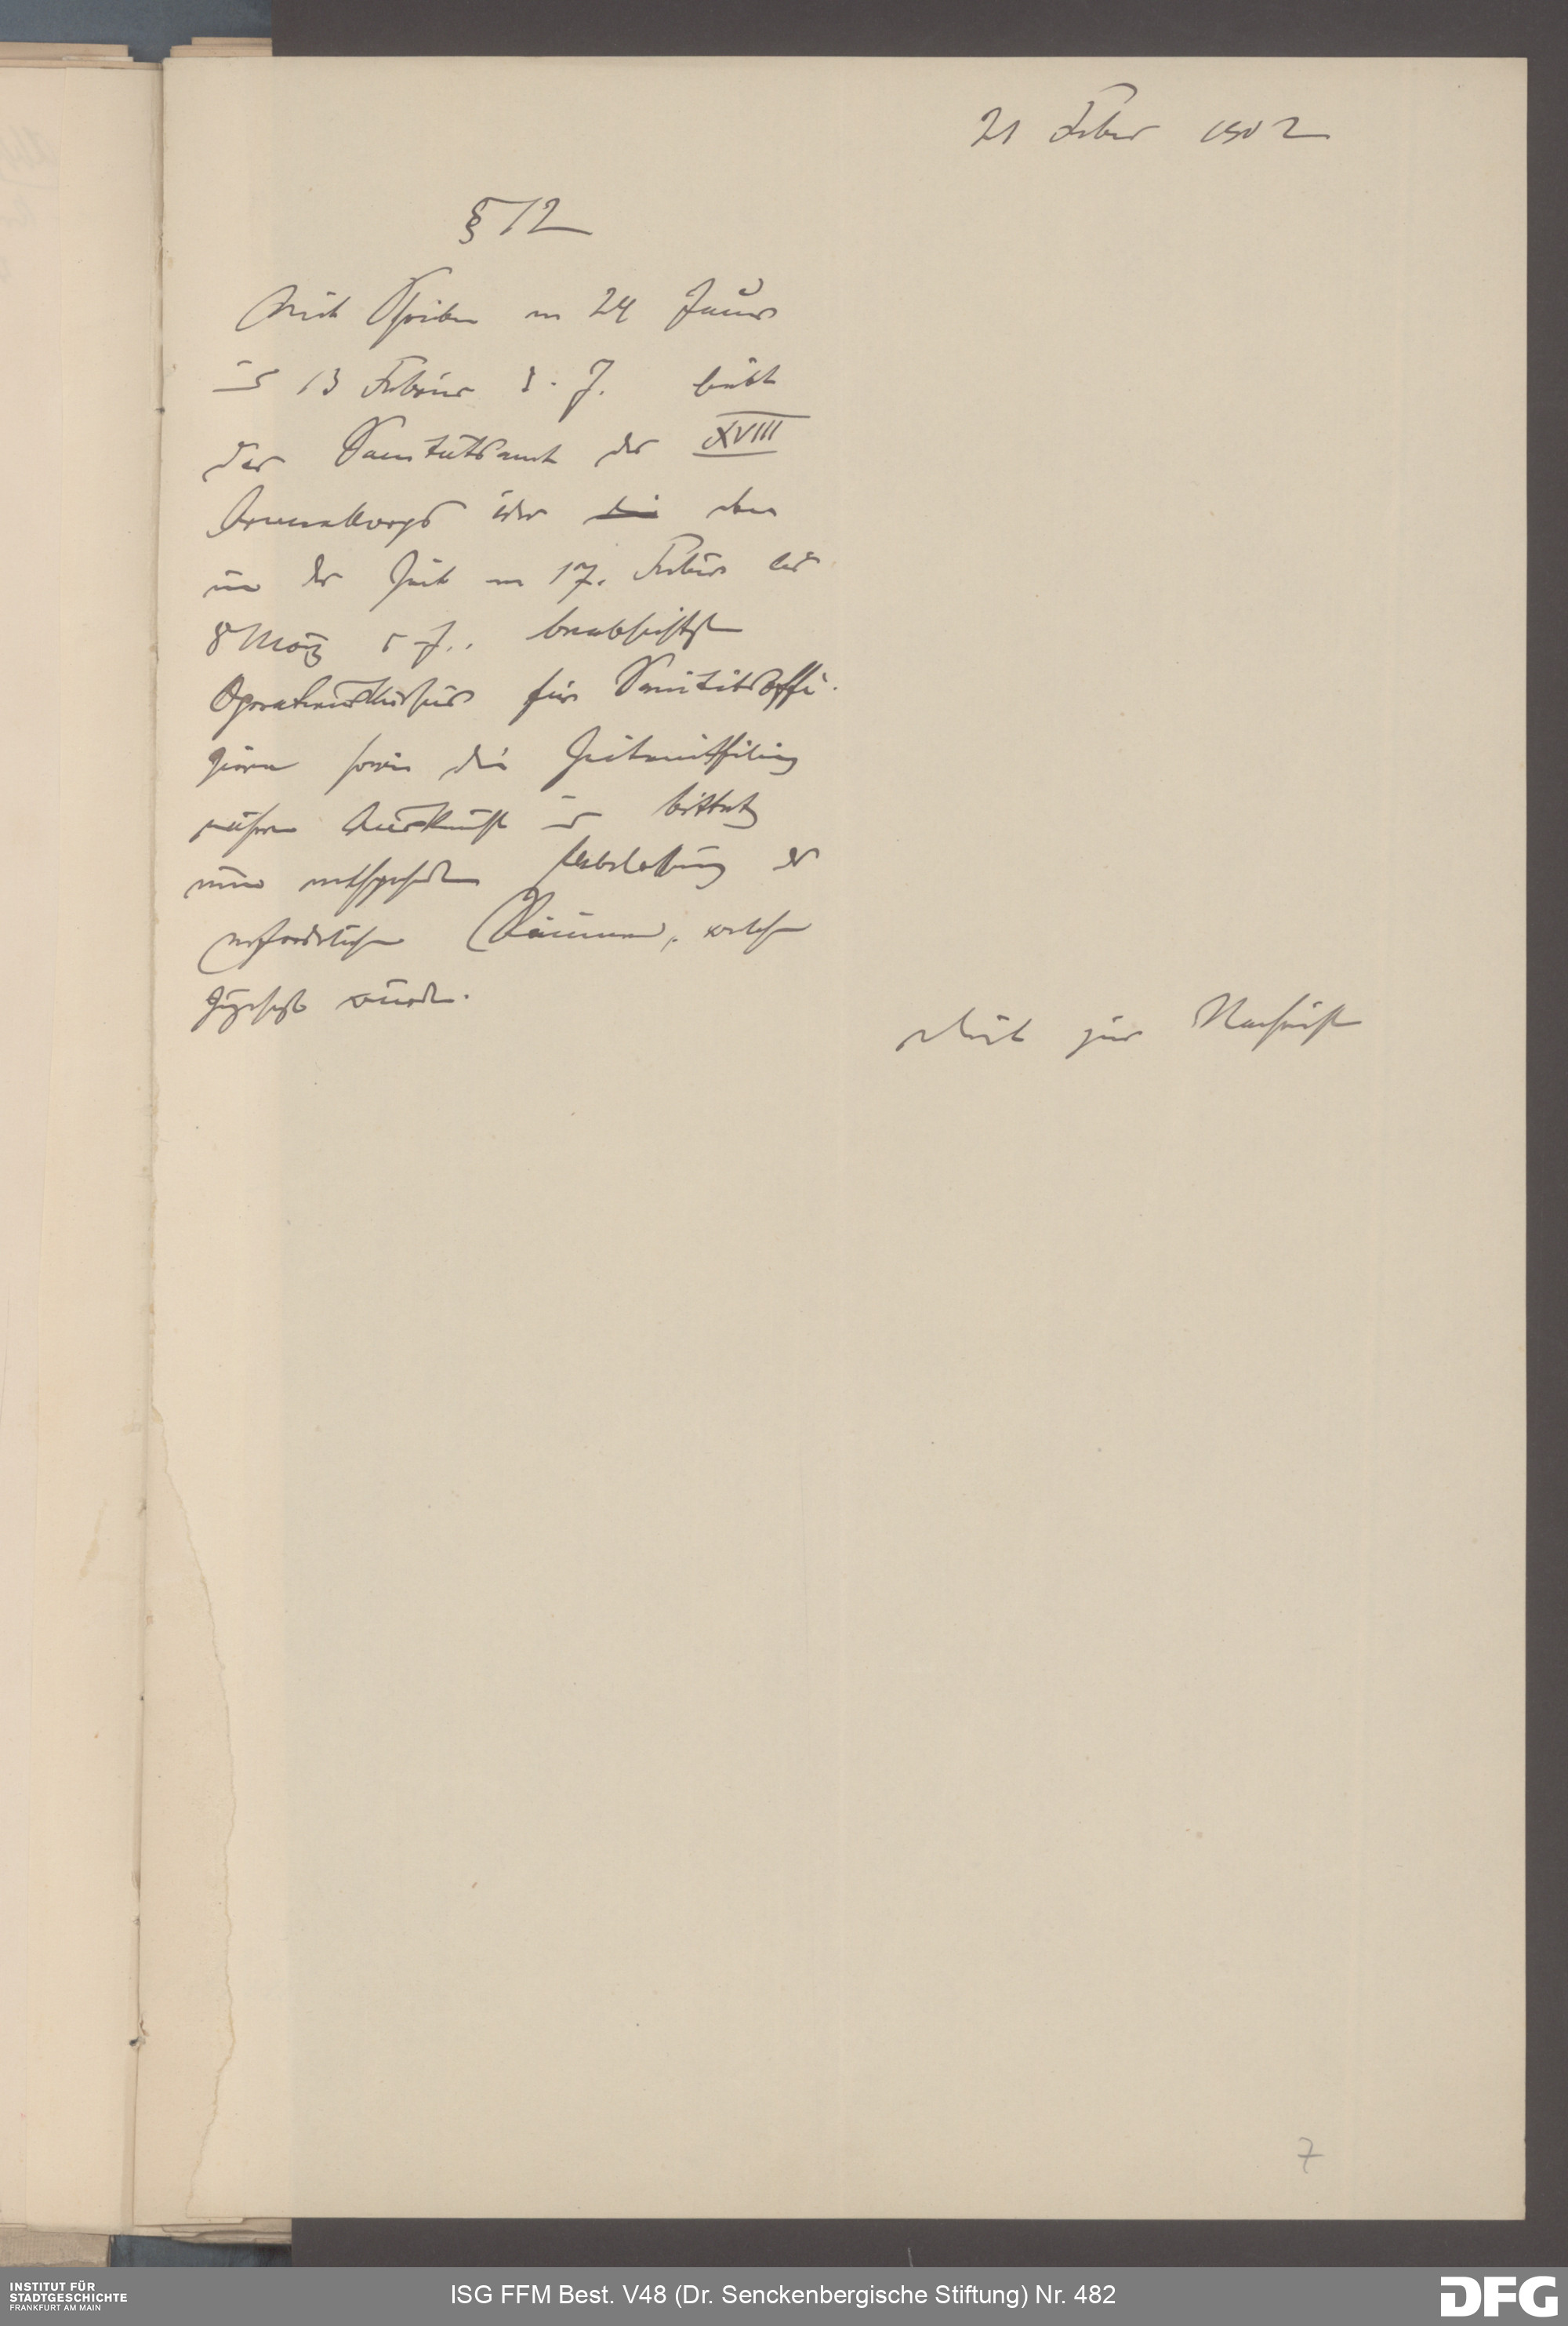 21 Febr 1902
§ 12
Mit Schreiben vom 24 Januar
und 13 Februar d. J. bittet
das Sanitätsamt des XVIII
Armeekorps über den
in der Zeit vom 17. Februar bis
8 März d J.. beabsichtigten
Operationskursus für Sanitätsoffi-
ziere sowie die
nähere Auskunft und bittet
um entsprechende Überlassung der
erforderlichen Räume, welche
zugesagt wurde.
Dient zur Nachricht
7
INSTITUT FÜR
STADTGESCHICHTE
FRANKFURT AM MAIN
ISG FFM Best. V48 (Dr. Senckenbergische Stiftung) Nr. 482
DFG